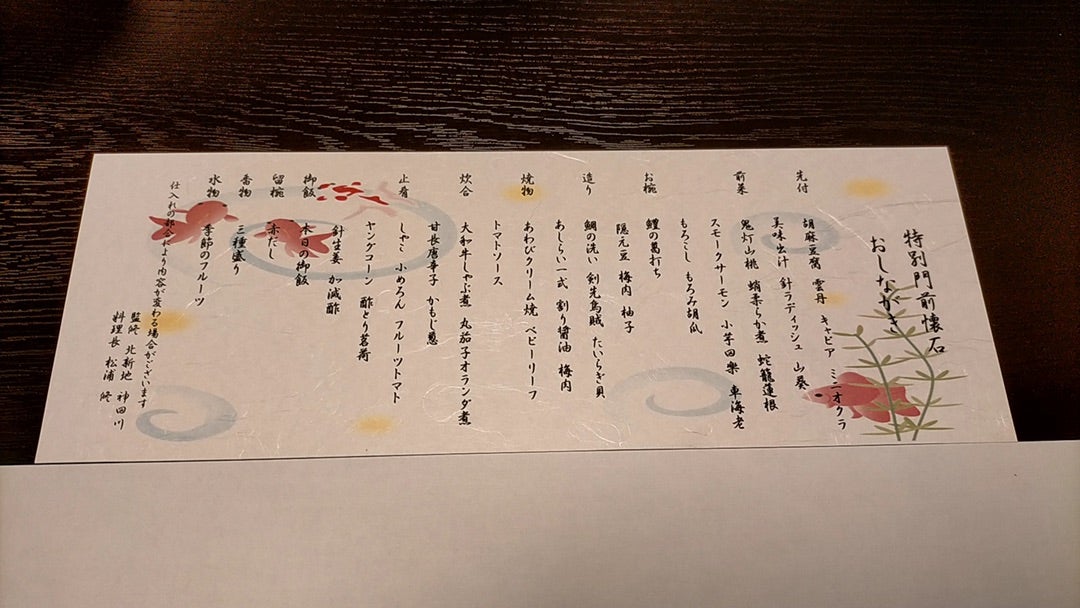 特別門前懐石
おしながき
先付 胡麻豆腐 雲丹 キャビア ミニオクラ
美味出汁 針ラディッシュ 山葵
前菜 鬼灯山桃 蛸柔らか煮 蛇籠蓮根
スモークサーモン 小芋田楽 車海老
もろこし もろみ胡瓜
お椀 鱧の葛打ち
隠元豆 梅肉 柚子
造り 鯛の洗い 剣先烏賊 たいらぎ貝
あしらい一式 割り醤油 梅肉
焼物 あわびクリーム焼 ベビーリーフ
トマトソース
炊合 大和牛しゃぶ煮 丸茄子オランダ煮
甘長唐辛子 かもじ葱
止肴 しゃこ 小めろん フルーツトマト
ヤングコーン 酢とり茗荷
針生姜 加減酢
御飯 本日の御飯
留椀 赤だし
香物 三種盛り
水物 季節のフルーツ
仕入れの都合により内容が変わる場合がございます
監修 北新地 神田川
料理長 松浦 修